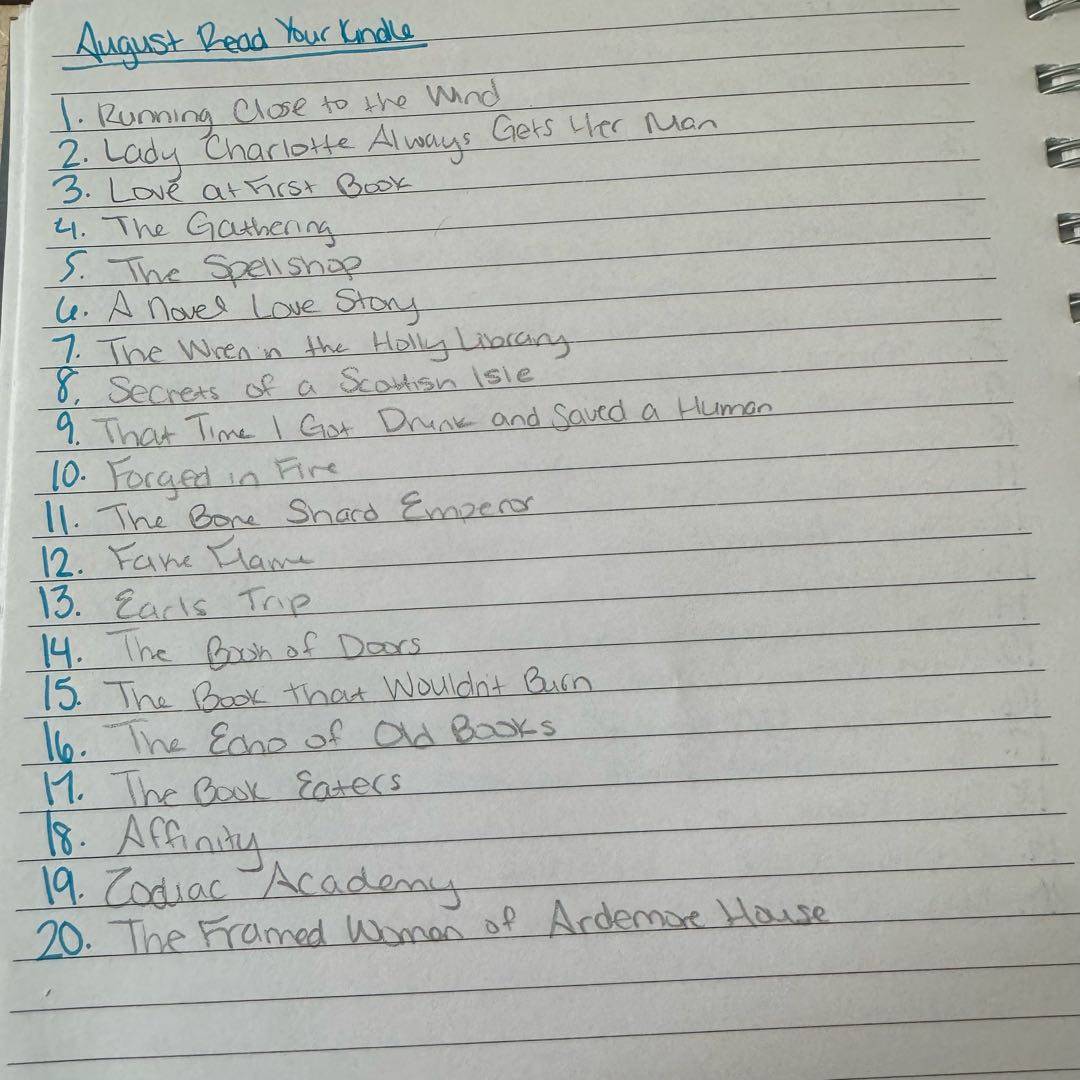 August Read Your Kindle
1. Running Close to the Wind
2. Lady Charlotte Always Gets Her Man
3. Love at First Book
4. The Gathering
5. The Spellshop
6. A Novel Love Story
7. The Wren in the Holly Library
8. Secrets of a Scottish Isle
9. That Time I Got Drunk and Saved a Human
10. Forged in Fire
11. The Bone Shard Emperor
12. Flame
13. Earls Trip
14. The Book of Doors
15. The Book that Wouldn't Burn
16. The Echo of Old Books
17. The Book Eaters
18. Affinity
19. Zodiac Academy
20. The Framed Women of Ardemore House